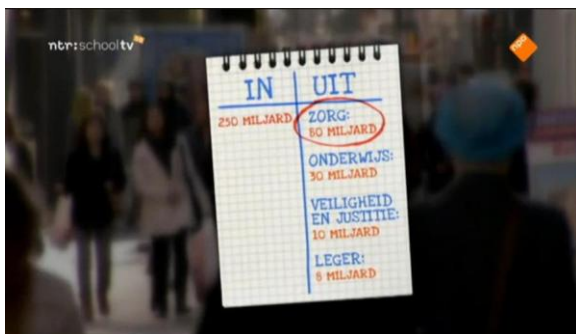 ntr:schooltv
npo
IN UIT
250 MILJARD
ZORG:
80 MILJARD
ONDERWIJS:
30 MILJARD
VEILIGHEID
EN JUSTITIE:
10 MILJARD
LEGER:
8 MILJARD